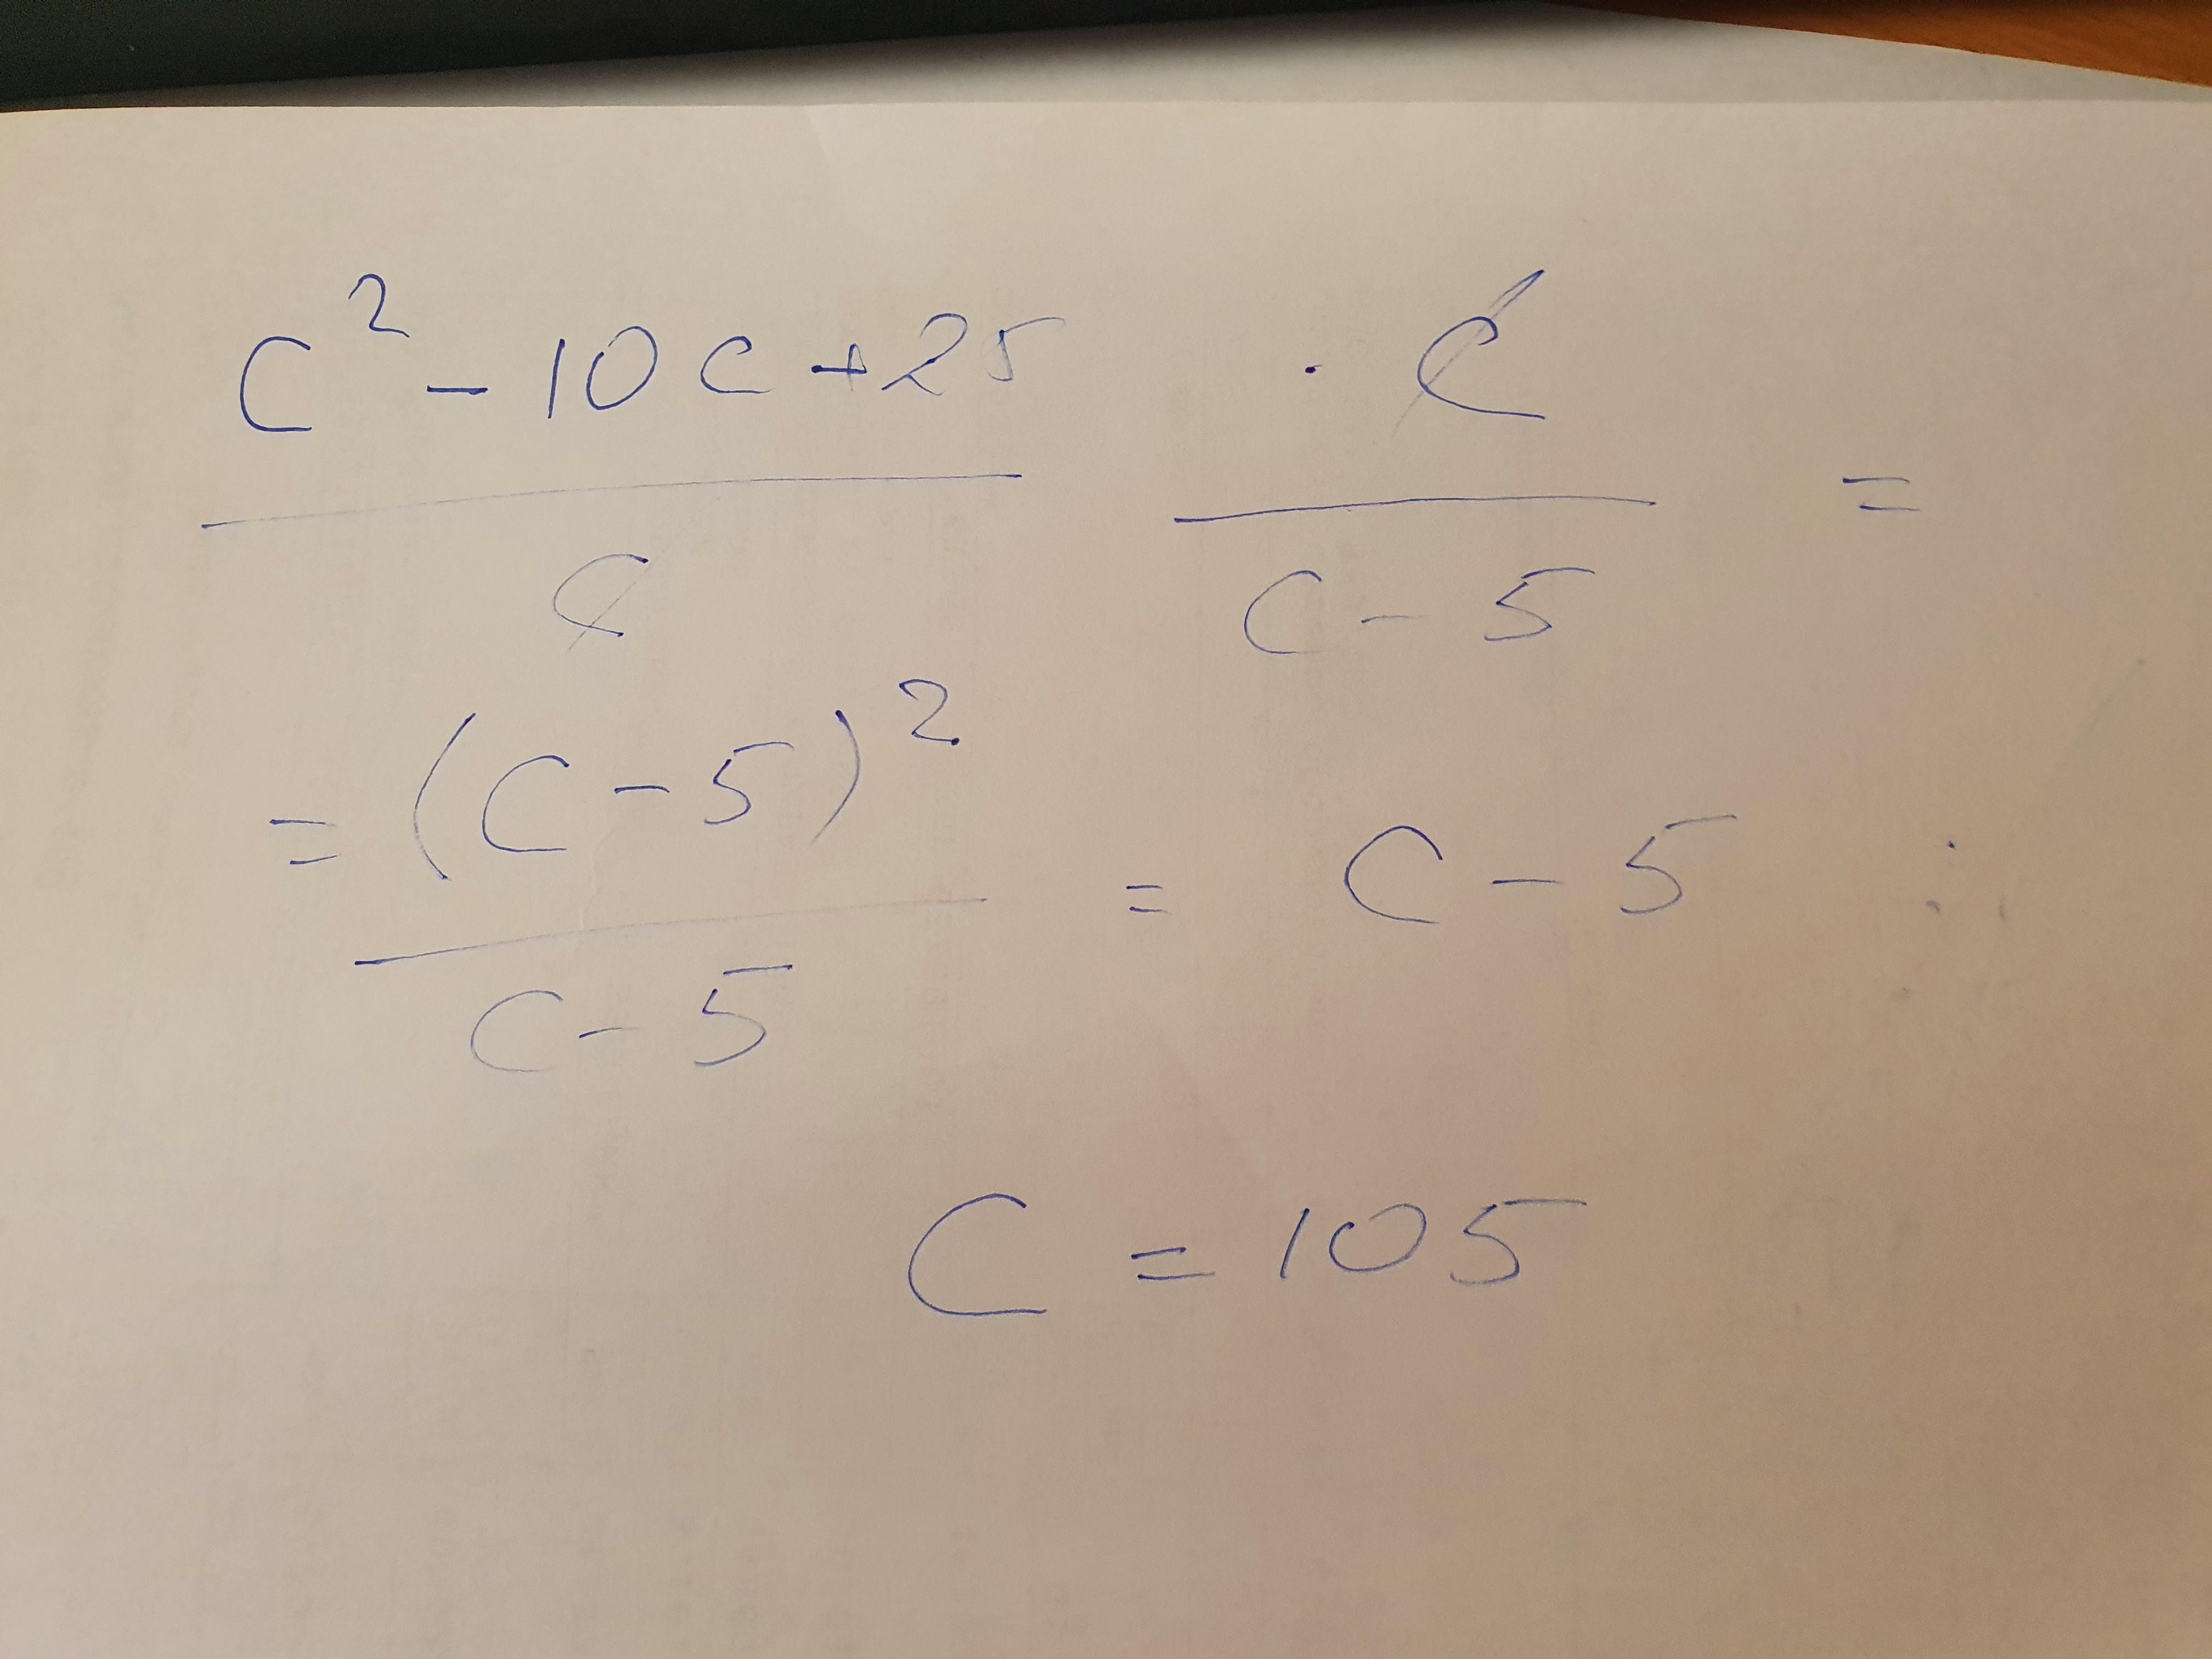 c² - 10c + 25 / c · c / c - 5 =
= (c - 5)² / c - 5 = c - 5 ;
c = 105